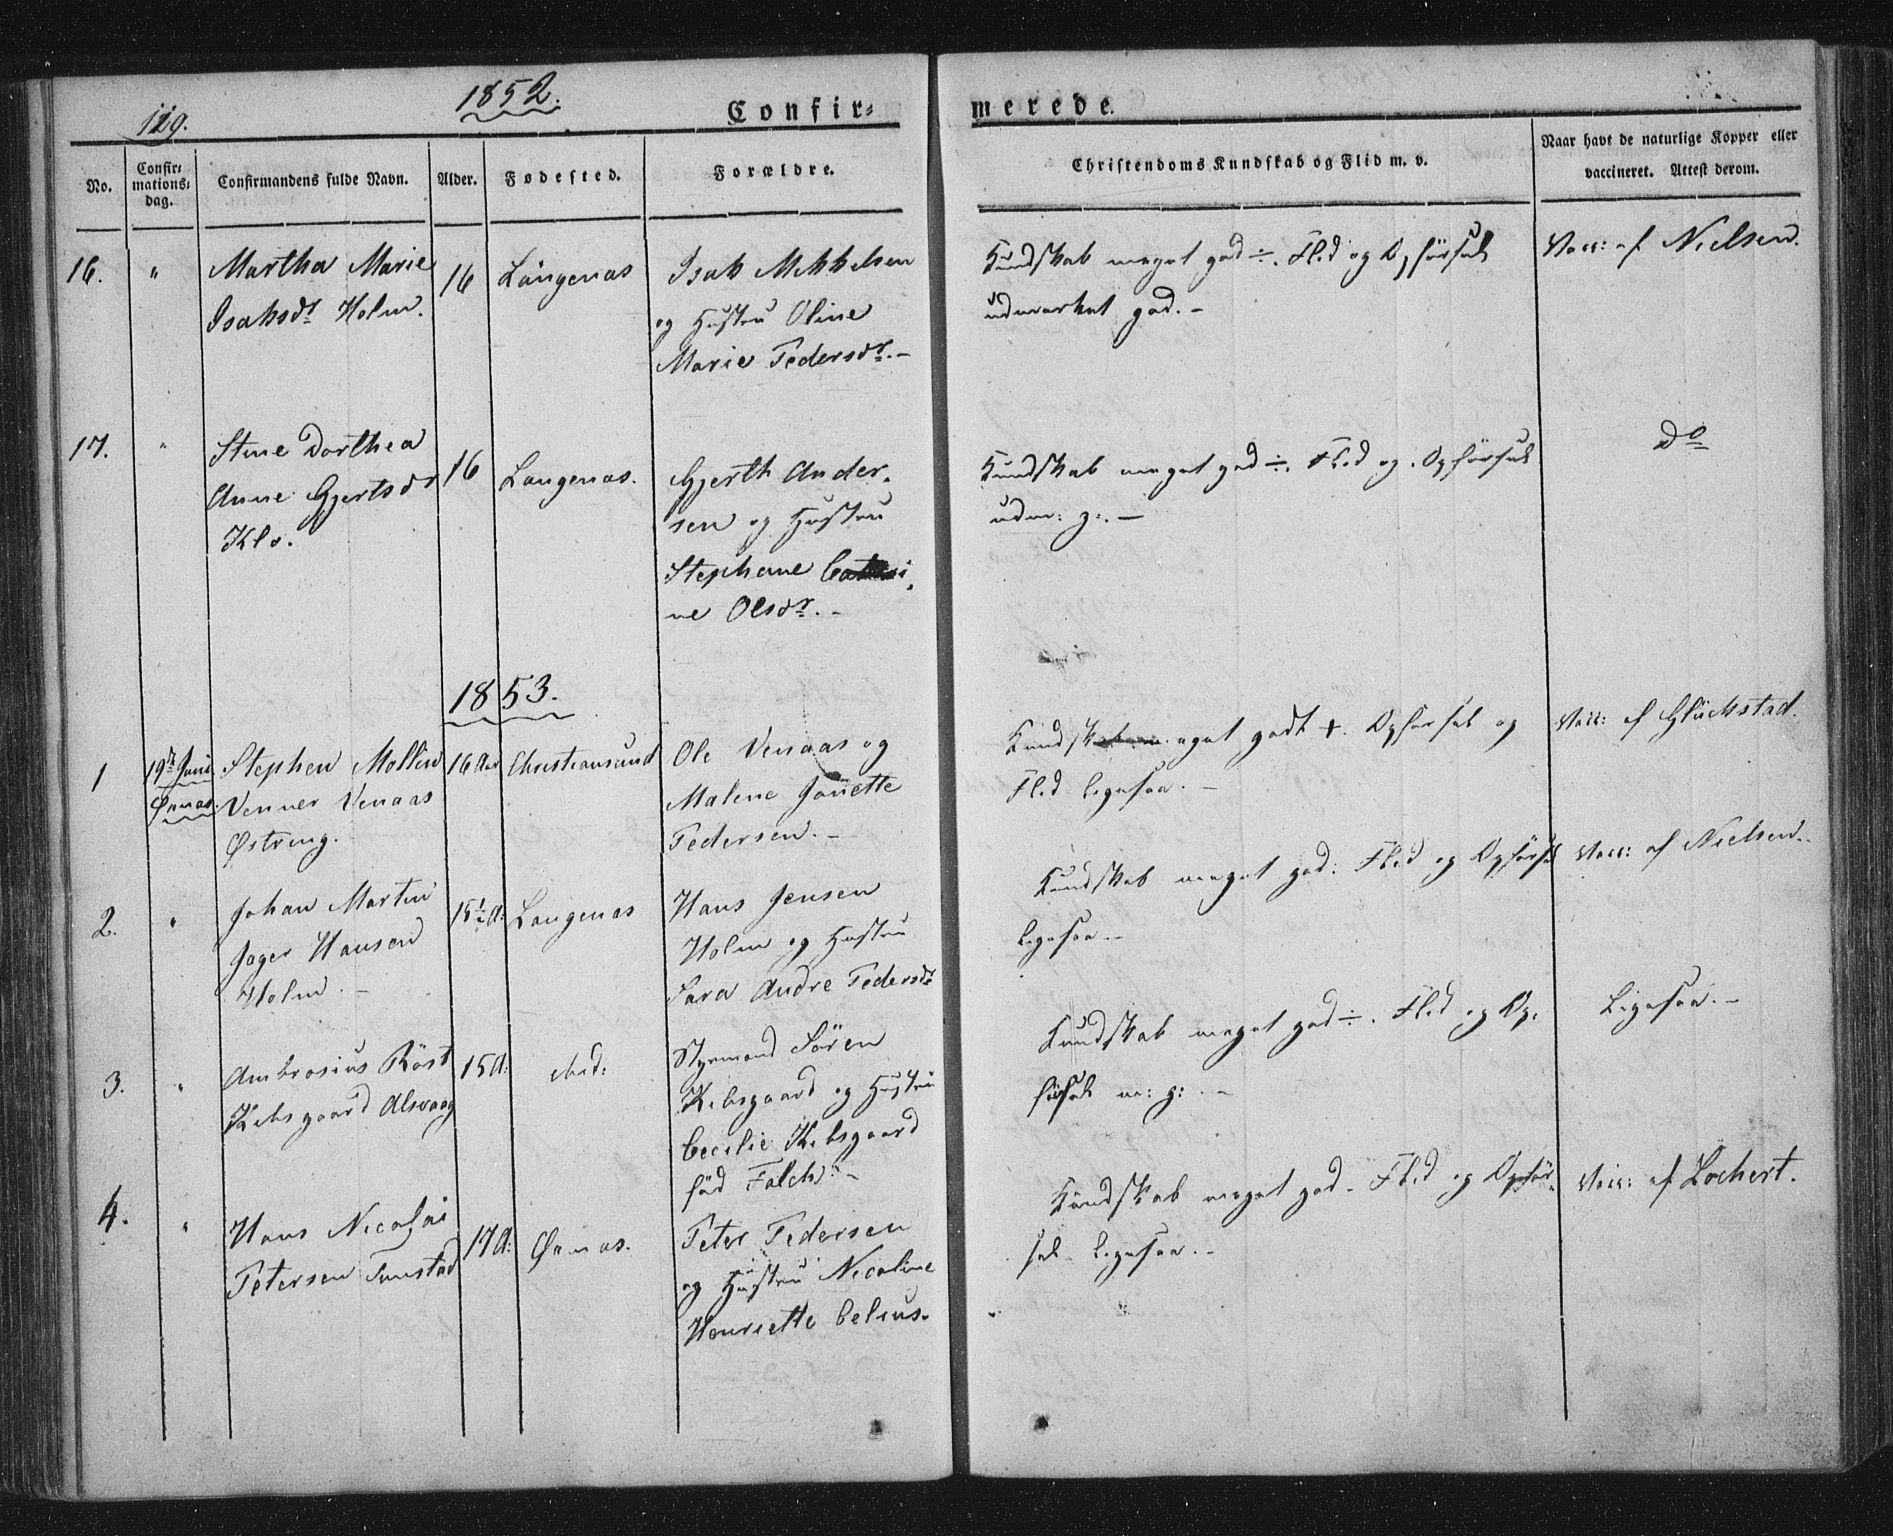 119.
1852.
Confir=
merede.
No.
Confir=
mations=
dag.
Confirmandens fulde Navn.
Alder.
Fødested.
Forældre.
Christendoms Kundskab og Flid m. v.
Naar havt de naturlige Kopper eller
vaccineret. Attest derom.
16. " Martha Marie 16 Langenæs Isak Mikkelsen Kundskab meget god ÷. Flid og Opførsel Vacc: af Nielsen.
Isaksdr Holm. og Hustru Oline udmærket god. -
Marie Pedersdr. -
17. " Stine Dorthea 16 Langenæs. Gjerth Ander- Kundskab meget god ÷. Flid og Opførsel Do
Anne Gjertsdr sen og Hustru udm: g: -
Klo. Stephane Cathri-
ne Olsdr. -
1853.
1 19de Juni Stephen Mollin 16 Aar Christiansund Ole Venaas og Kundskab meget godt +. Opførsel og Vacc: af Glückstad.
Øxnæs. Venner Venaas Malene Janette Flid ligesaa. -
Østreng. Pedersen. -
2. " Johan Martin 15½ A. Langenæs Hans Jensen Kundskab meget god. Flid og Opførsel Vacc: af Nielsen.
Jager Hansen Holm og Hustru ligesaa. -
Holm. - Sara Andre Pedersdr
3. " Ambrosius Röst 15 A. ibid: Styrmand Sören Kundskab meget god ÷. Flid og Op- Ligesaa. -
Kibsgaard Alsvaag Kibsgaard og Hustru førsel m: g: -
Cecilie Kibsgaard
föd Falch. -
4. " Hans Nicolai 17 A. Øxnæs. Peter Pedersen Kundskab meget god. Flid og Opfør- Vacc: af Lochert.
Petersen Tunstad og Hustru Nicoline sel ligesaa. -
Henriette Celius.